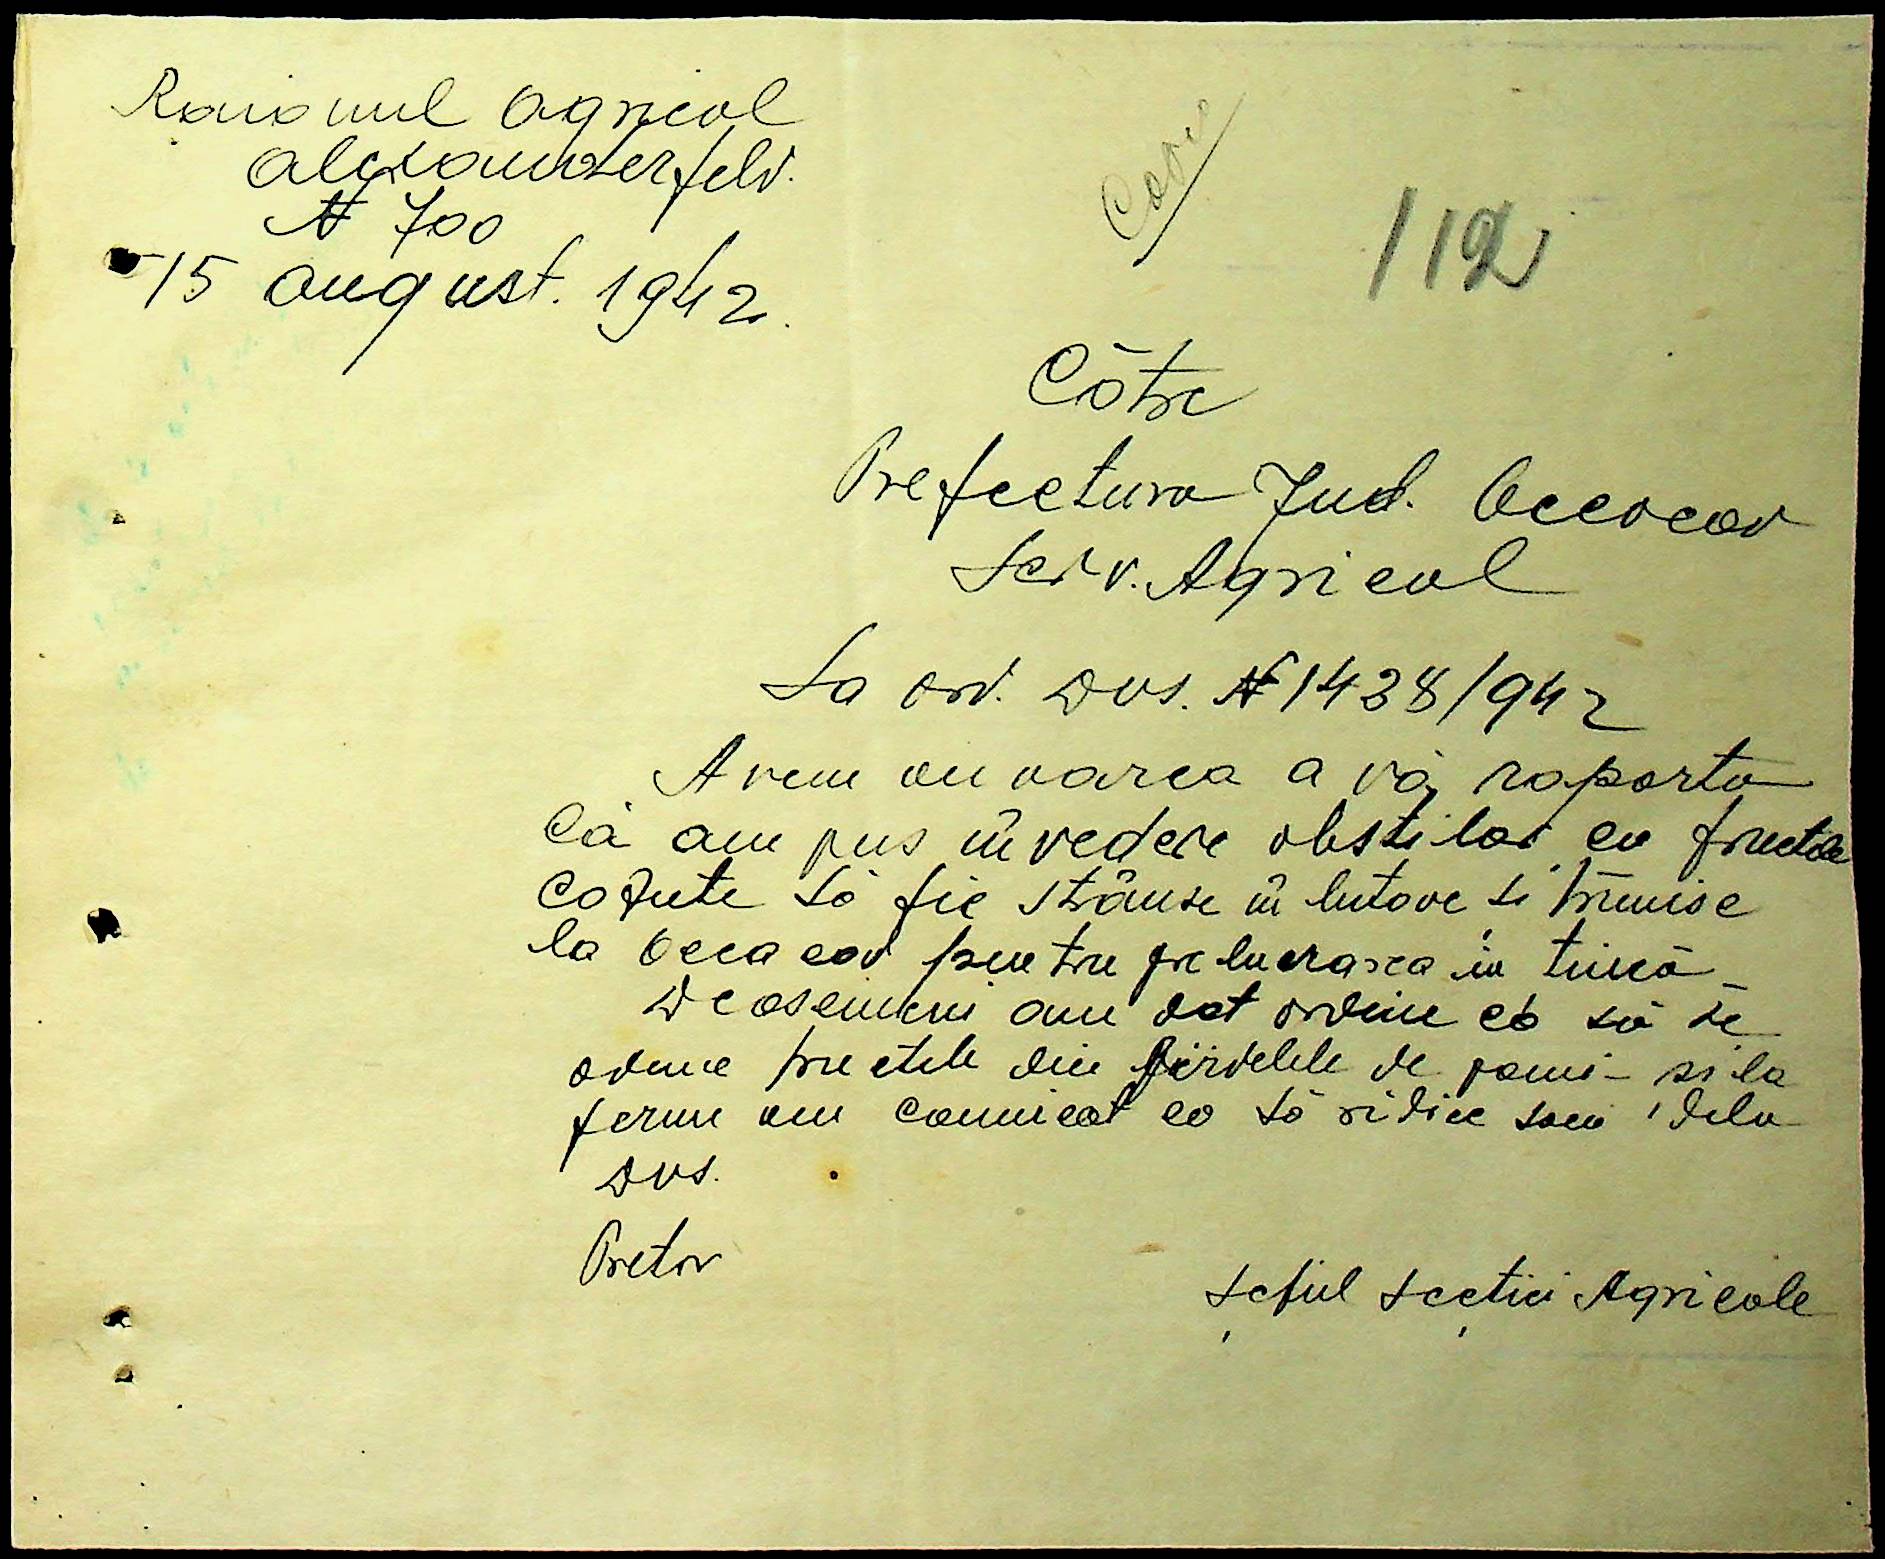 Raionul agricol
Alexanderfeld.
N 700
15 august. 1942.
Copie
112
Cötre
Prefectura Jud. Oceacov
Serv. Agricol
La ord. Dvs. N 1438/942
Avem onoarea a vă raporta
Că am pus în vedere obstilor ca fructele
cozute să fie strânse în butoae și trimise
la Oceacov pentru prelucrarea în țuică
Deasemeni am dat ordine că să se
adune fructele din perdelele de pomi - și la
ferme am comunicat ca să ridice saci dela
Dvs.
Pretor
Șeful Secției Agricole